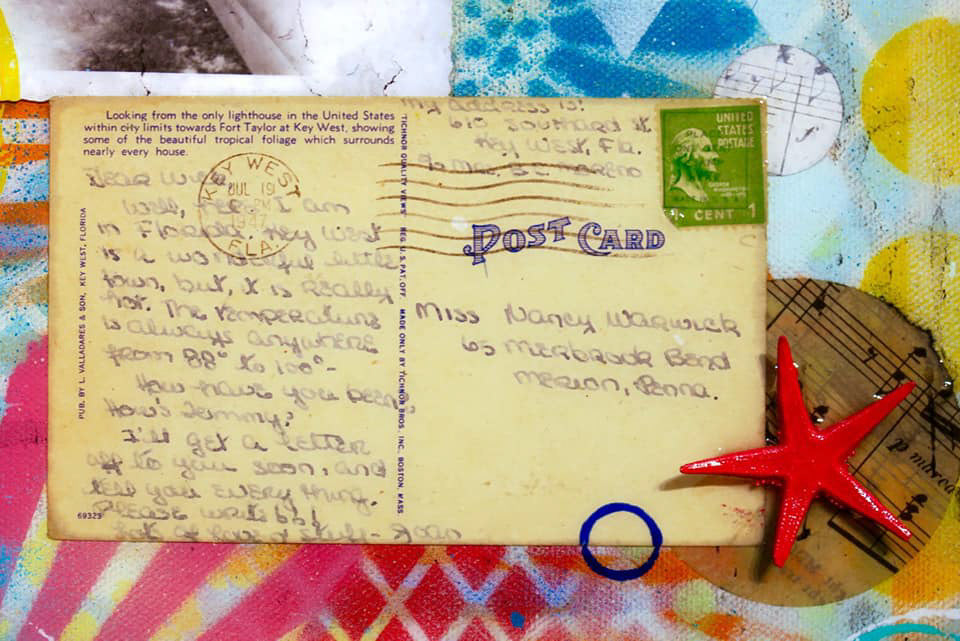 Looking from the only lighthouse in the United States
within city limits towards Fort Taylor at Key West, showing
some of the beautiful tropical foliage which surrounds
nearly every house.
Dear
Well, here I am
in Florida. Key West
is a wonderful little
town, but, it is really
hot. The temperature
is always anywhere
from 88° to 100°-
How have you been?
How's Jemmy?
I'll get a letter
off to you soon, and
tell you every thing.
PLEASE write
Lots of love & stuff- Joan
69325
PUB. BY L. VALLADARES & SON, KEY WEST, FLORIDA
"TICHNOR QUALITY VIEWS" REG. U. S. PAT. OFF. MADE ONLY BY TICHNOR BROS. INC. BOSTON, MASS
KEY WEST
JUL 19
PM
FLA.
My address is:
615 Southard St
Key West, Fla.
UNITED
STATES
POSTAGE
GEORGE
WASHINGTON
CENT 1
POST CARD
Miss Nancy Warwick
65 Merbrook Bend
Merion, Penna.